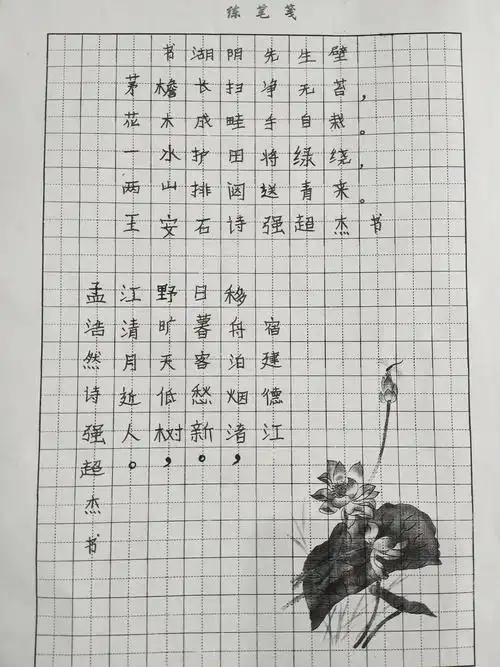 练笔笺
书湖阴先生壁
茅檐长扫净无苔,
花木成畦手自栽。
一水护田将绿绕,
两山排闼送青来。
王安石诗强超杰书
宿建德江
移舟泊烟渚,
日暮客愁新。
野旷天低树,
江清月近人。
孟浩然诗强超杰书